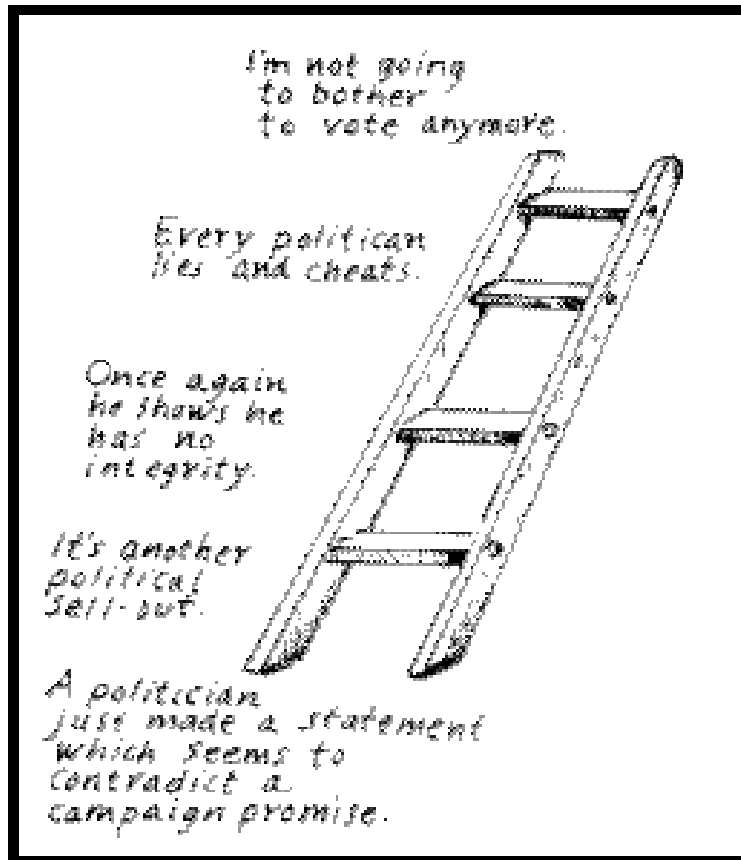 I'm not going
to bother
to vote anymore.
Every politican
lies and cheats.
Once again
he shows he
has no
integrity.
It's another
political
sell-out.
A politician
just made a statement
which seems to
contradict a
campaign promise.